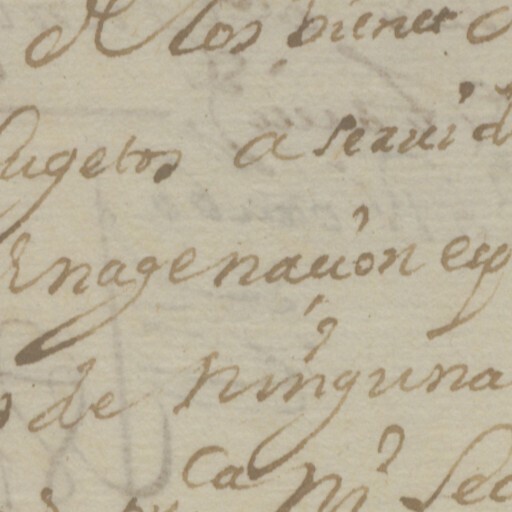 de los bienes
sugetos a servid
Enagenacion exp
de ninguna
Ca